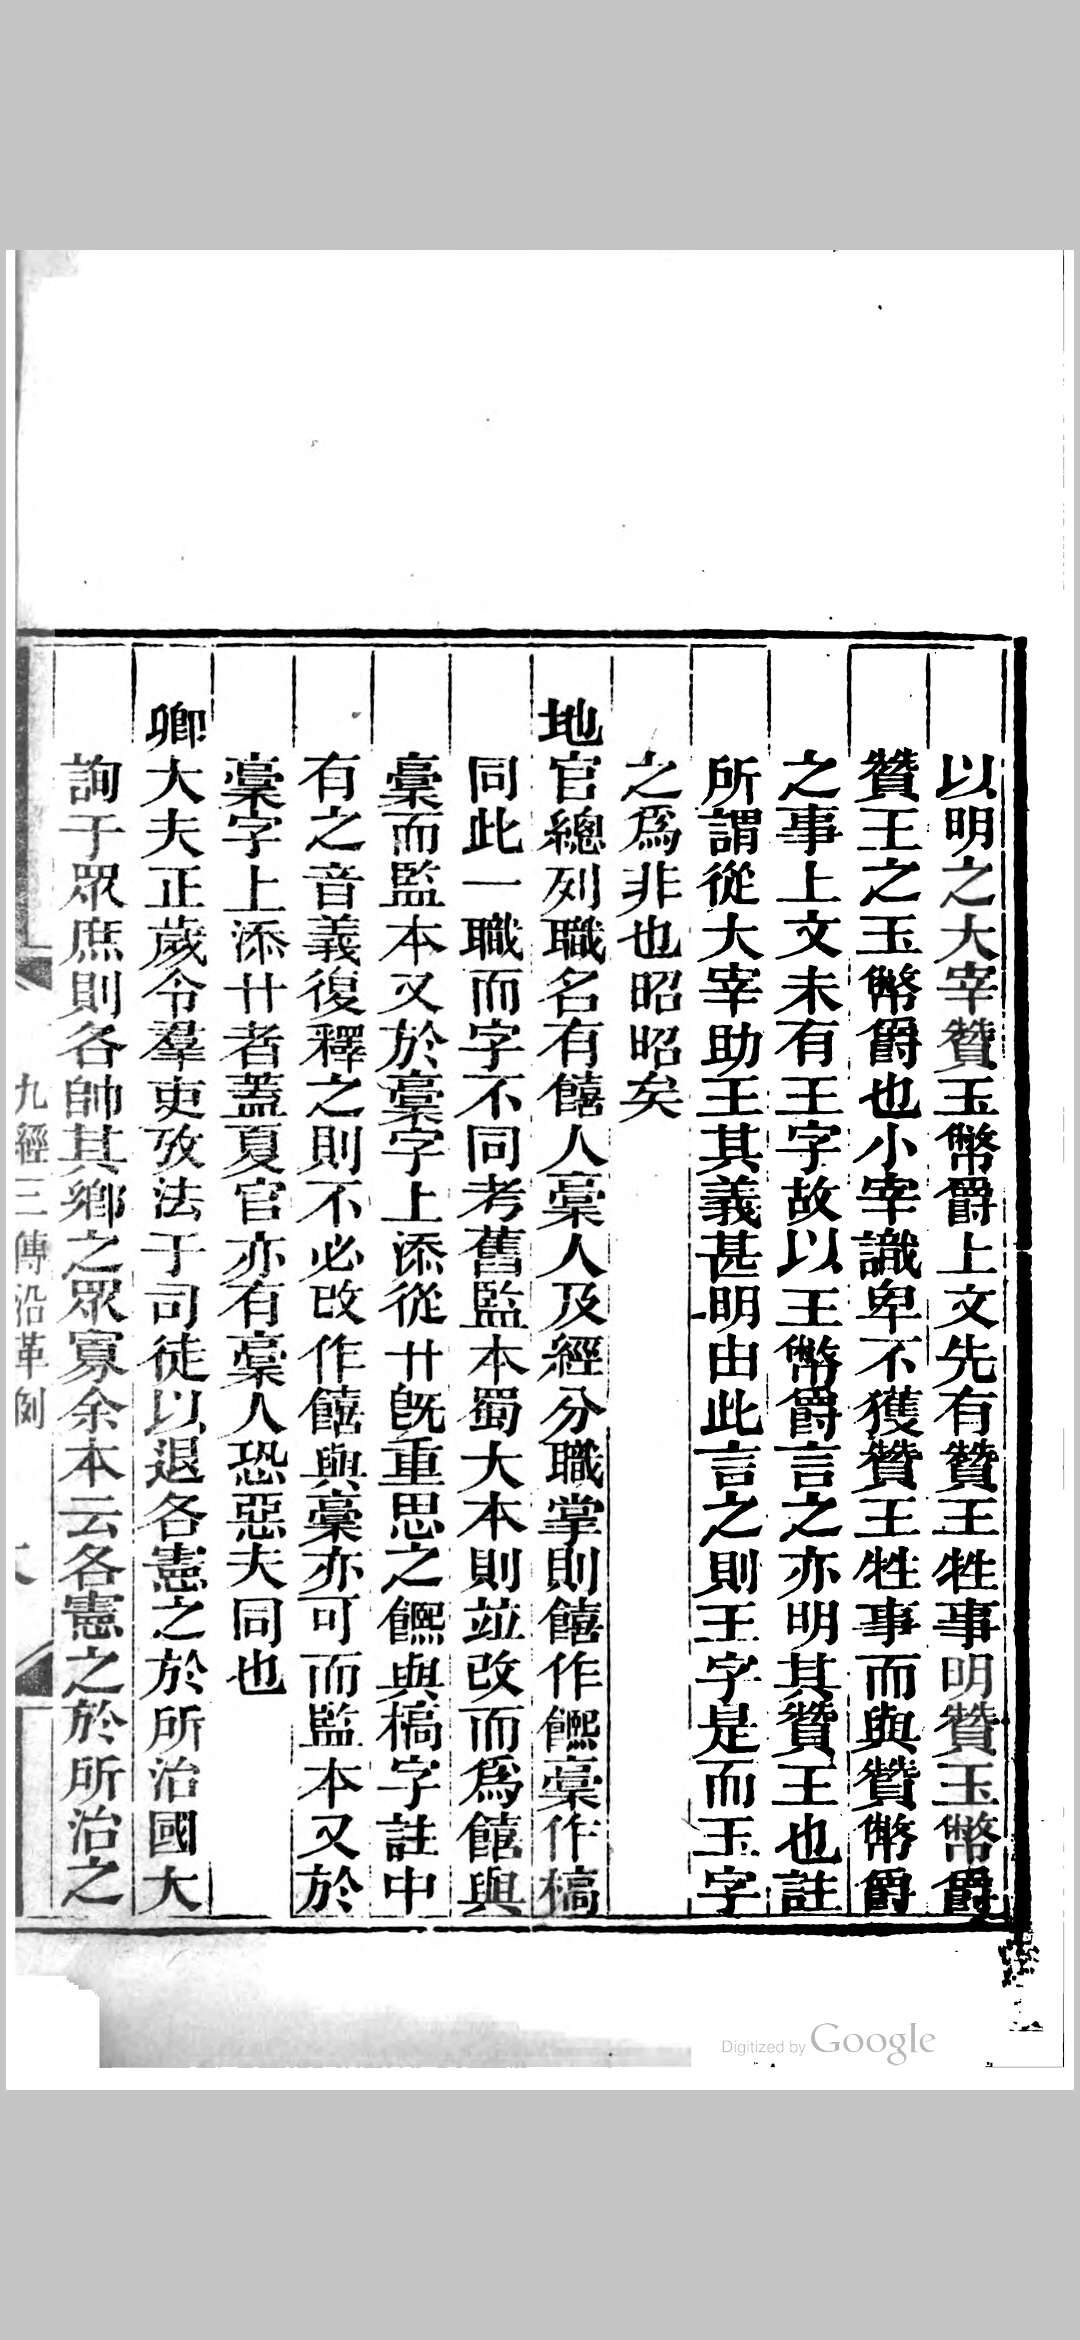 以明之大宰贊玉幣爵上文先有贊王牲事明贊玉幣爵
贊王之玉幣爵也小宰識卑不獲贊王牲事而與贊幣爵
之事上文未有王字故以王幣爵言之亦明其贊王也註
所謂從大宰助王其義甚明由此言之則王字是而玉字
之爲非也昭昭矣
地官總列職名有饎人稾人及經分職掌則饎作饎稾作槁
同此一職而字不同考舊監本蜀大本則並改而爲饎與
稾而監本又於稾字上添從廾旣重思之饎與槁字註中
有之音義復釋之則不必改作饎與稾亦可而監本又於
稾字上添廾者蓋夏官亦有稾人恐惡夫同也
鄉大夫正歲令羣吏攷法于司徒以退各憲之於所治國大
詢于眾庶則各帥其鄉之眾寡余本云各憲之於所治之
九經三傳沿革例
Digitized by Google